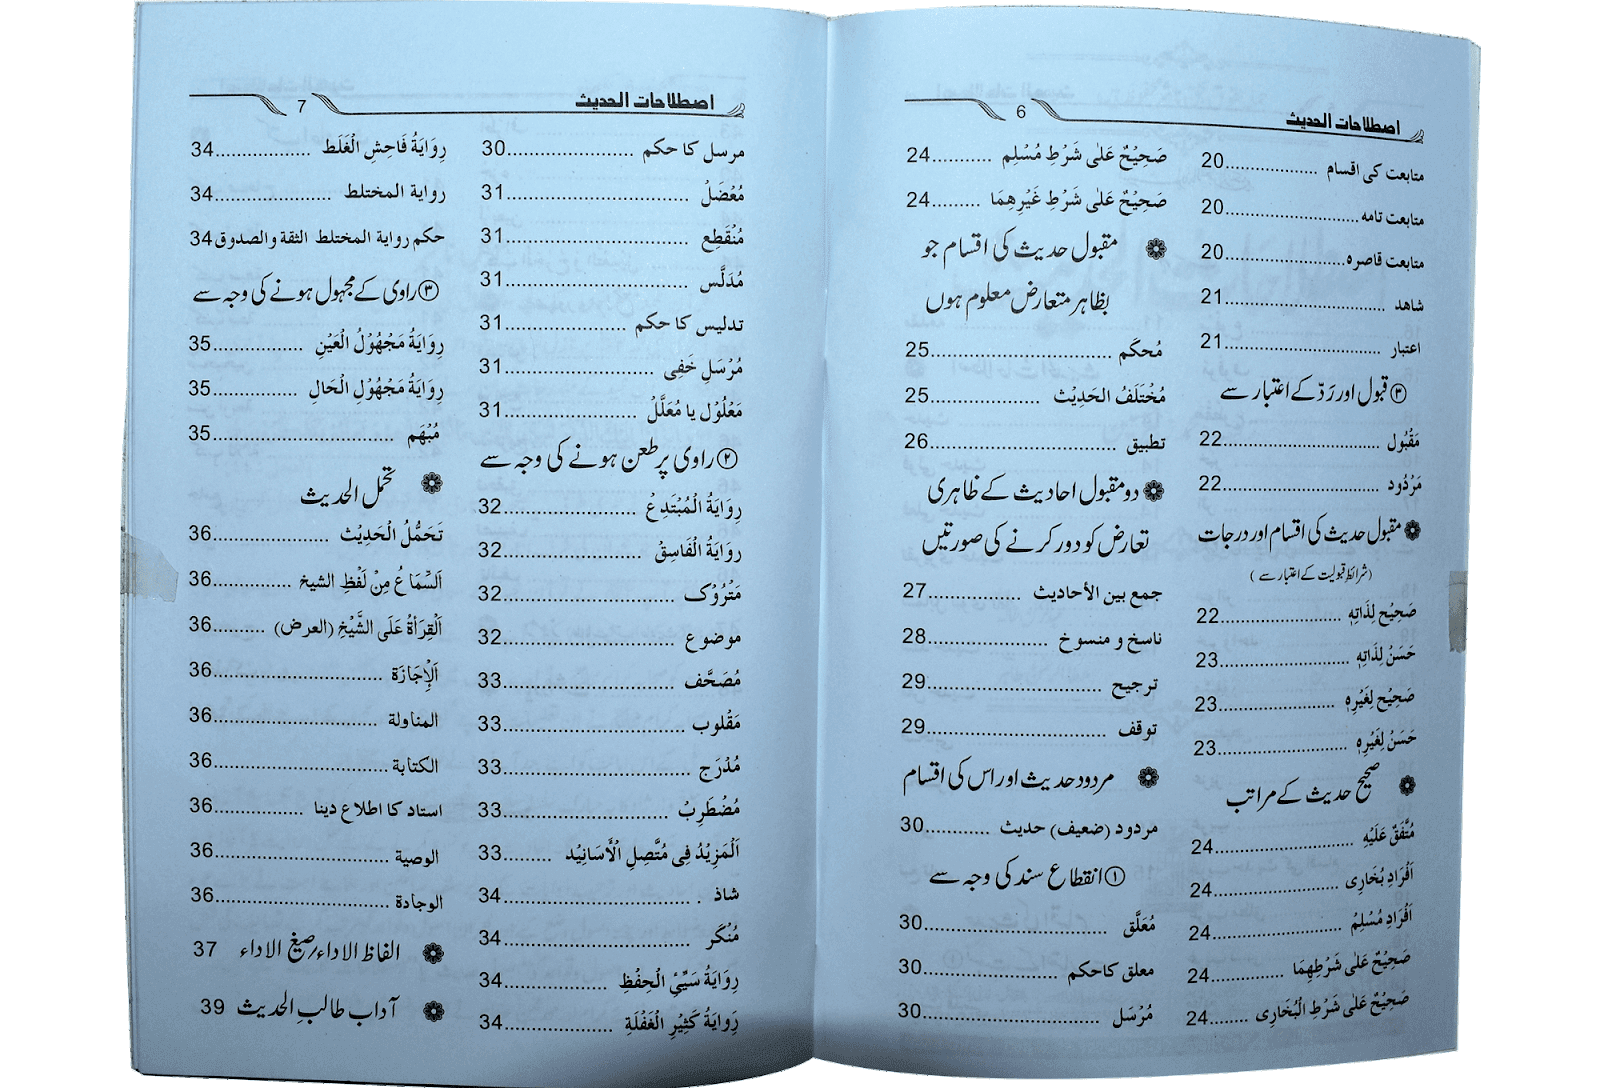 اصطلاحات الحدیث 6
متابعت کی اقسام ..................20
متابعت تامہ..........................20
متابعت قاصرہ.......................20
شاھد ...............................21
اعتبار ..............................21
③ قبول اور رَدّ کے اعتبار سے
مَقْبُول ..............................22
مَرْدُود ..............................22
مقبول حدیث کی اقسام اور درجات
(شرائطِ قبولیت کے اعتبار سے )
صَحِیْح لِذَاتِہٖ ......................22
حَسَنْ لِذَاتِہٖ .......................23
صَحِیْح لِغَیْرِہٖ .....................23
حَسَنْ لِغَیْرِہٖ .......................23
صحیح حدیث کے مراتب
مُتَّفَقٌ عَلَیْہِ ........................24
اَفْرَادِ بُخَارِی ......................24
اَفْرَادِ مُسْلِمُ ......................24
صَحِیْحٌ عَلٰی شَرْطِھِمَا ............24
صَحِیْحٌ عَلٰی شَرْطِ الْبُخَارِی .......24
صَحِیْحٌ عَلٰی شَرْطِ مُسْلِم ..........24
صَحِیْحٌ عَلٰی شَرْطِ غَیْرِھِمَا .......24
مقبول حدیث کی اقسام جو
بظاہر متعارض معلوم ہوں
مُحکَم ..............................25
مُخْتَلَفُ الحَدِیْث ....................25
تطبیق ..............................26
دو مقبول احادیث کے ظاہری
تعارض کو دور کرنے کی صورتیں
جمع بین الأحادیث ..................27
ناسخ و منسوخ ......................28
ترجیح ..............................29
توقف ..............................29
مردود حدیث اور اس کی اقسام
مردود (ضعیف) حدیث ..............30
① انقطاع سند کی وجہ سے
مُعَلَّق ..............................30
معلق کاحکم ........................30
مُرْسَل ..............................30
اصطلاحات الحدیث 7
مرسل کا حکم ......................30
مُعْضَلْ ..............................31
مُنْقَطِع ..............................31
مُدَلَّس ..............................31
تدلیس کا حکم ......................31
مُرْسَلِ خَفِی ........................31
مَعْلُوْل یا مُعَلَّلْ ....................31
② راوی پر طعن ہونے کی وجہ سے
رِوَایَةُ الْمُبْتَدِعْ ....................32
رِوَایَةُ الْفَاسِقْ .....................32
مَتْرُوْک ..............................32
موضوع ..............................32
مُصَحَّف ..............................33
مَقْلُوب ..............................33
مُدْرَج ..............................33
مُضْطَرِبْ ............................33
اَلْمَزِیْدُ فِی مُتَّصِلِ الْأَسَانِیْد .......33
شاذ . ..............................34
مُنْکَر ..............................34
رِوَایَةُ سَیِّیِٔ الْحِفْظِ ..................34
رِوَایَةُ کَثِیْرِ الْغَفْلَةِ ..................34
رِوَایَةُ فَاحِشِ الْغَلَط ..................34
روایة المختلط ......................34
حکم روایة المختلط الثقة والصدوق34
③ راوی کے مجہول ہونے کی وجہ سے
رِوَایَةُ مَجْهُوْلُ الْعَیْنِ ................35
رِوَایَةُ مَجْهُوْلِ الْحَالِ ................35
مُبْهَم ..............................35
تحمل الحدیث
تَحَمُّلُ الْحَدِیْث ......................36
اَلسِّمَاعُ مِنْ لَفْظِ الشیخ ..............36
اَلْقِرَأةُ عَلَی الشَّیْخِ (العرض) ..........36
اَلْإِجَازَة ..............................36
المناولة ............................36
الکتابة ..............................36
استاد کا اطلاع دینا ..................36
الوصیة ..............................36
الوجادة ..............................36
الفاظ الاداء/صیغ الاداء 37
آداب طالبِ الحدیث 39